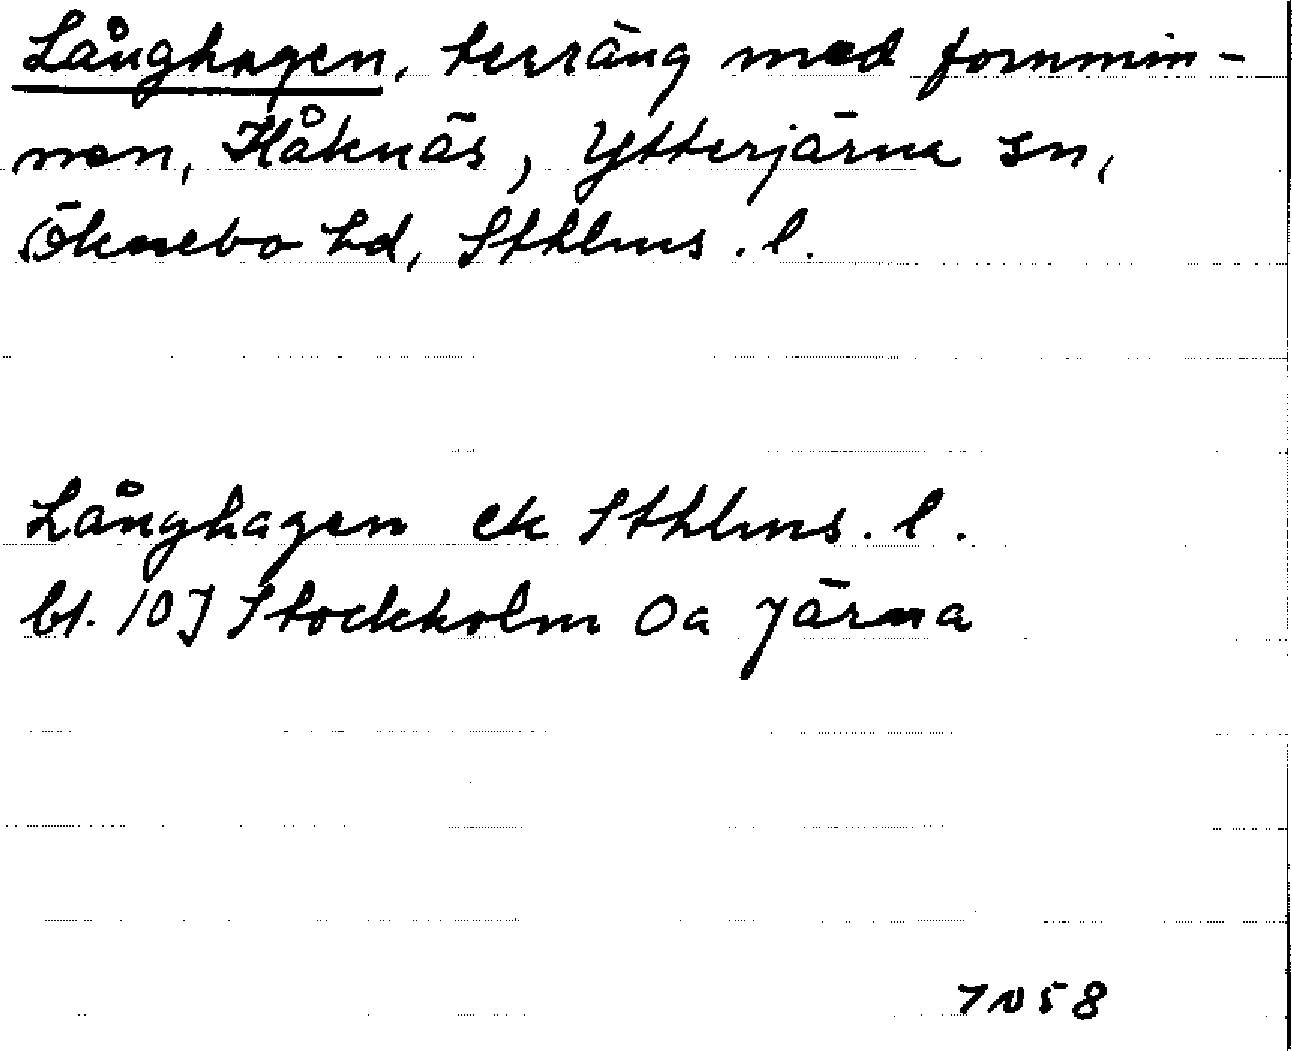 Långhagen, terräng med fornmin-
nen, Håknäs, Ytterjärna sn,
Öknebo hd, Sthlms. l.
Långhagen ek Sthlms. l.
bl. 10J Stockholm Oa Järna
7N58